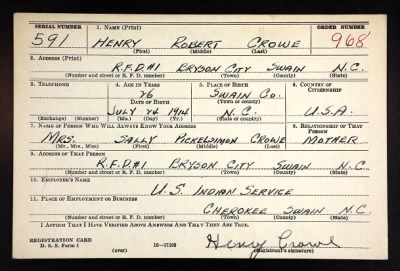 SERIAL NUMBER 1. NAME (Print) ORDER NUMBER
591 HENRY ROBERT CROWE 968
(First) (Middle) (Last)
2. ADDRESS (Print)
R.F.D.#1 BRYSON CITY SWAIN N.C.
(Number and street or R. F. D. number) (Town) (County) (State)
3. TELEPHONE 4. AGE IN YEARS 5. PLACE OF BIRTH 6. COUNTRY OF CITIZENSHIP
26 SWAIN CO.
DATE OF BIRTH (Town or county)
JULY 24 1914 N.C. U.S.A.
(Exchange) (Number) (Mo.) (Day) (Yr.) (State or country)
7. NAME OF PERSON WHO WILL ALWAYS KNOW YOUR ADDRESS 8. RELATIONSHIP OF THAT PERSON
MRS. SALLY PICKELSIMON CROWE MOTHER
(Mr., Mrs., Miss) (First) (Middle) (Last)
9. ADDRESS OF THAT PERSON
R.F.D.#1 BRYSON CITY SWAIN N.C.
(Number and street or R. F. D. number) (Town) (County) (State)
10. EMPLOYER'S NAME
U.S. INDIAN SERVICE
11. PLACE OF EMPLOYMENT OR BUSINESS
CHEROKEE SWAIN N.C.
(Number and street or R. F. D. number) (Town) (County) (State)
I AFFIRM THAT I HAVE VERIFIED ABOVE ANSWERS AND THAT THEY ARE TRUE.
REGISTRATION CARD
D. S. S. Form 1 (over) 16—17105 Henry Crowe
(Registrant's signature)